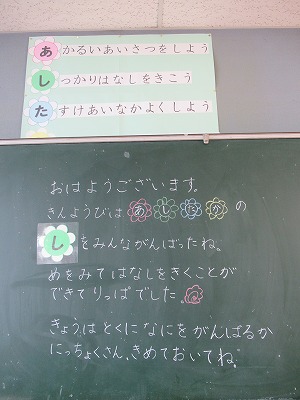 あかるいあいさつをしよう
しっかりはなしをきこう
たすけあいなかよくしよう
おはようございます。
きんようびは あ し た か の
し をみんながんばったね。
めをみてはなしをきくことが
できてりっぱでした。
きょうはとくになにをがんばるか
にっちょくさん、きめておいてね。